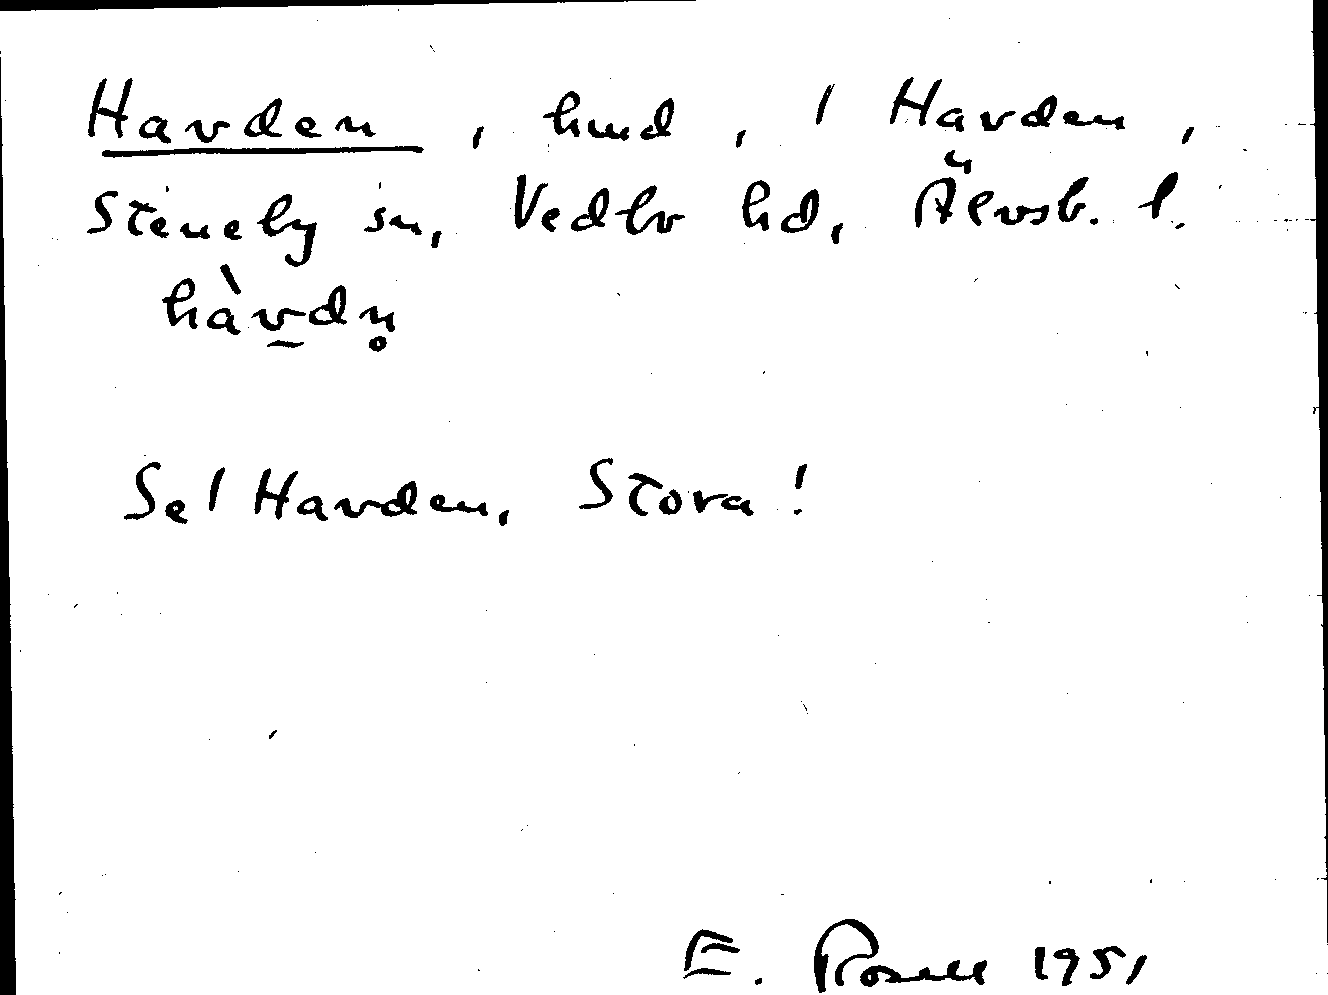 Havden, hmd, / Havden,
Steneby sn, Vedbo hd, Älvsb. l.
hàvdn̥
Se / Havden, Stora!
E. Rosell 1951